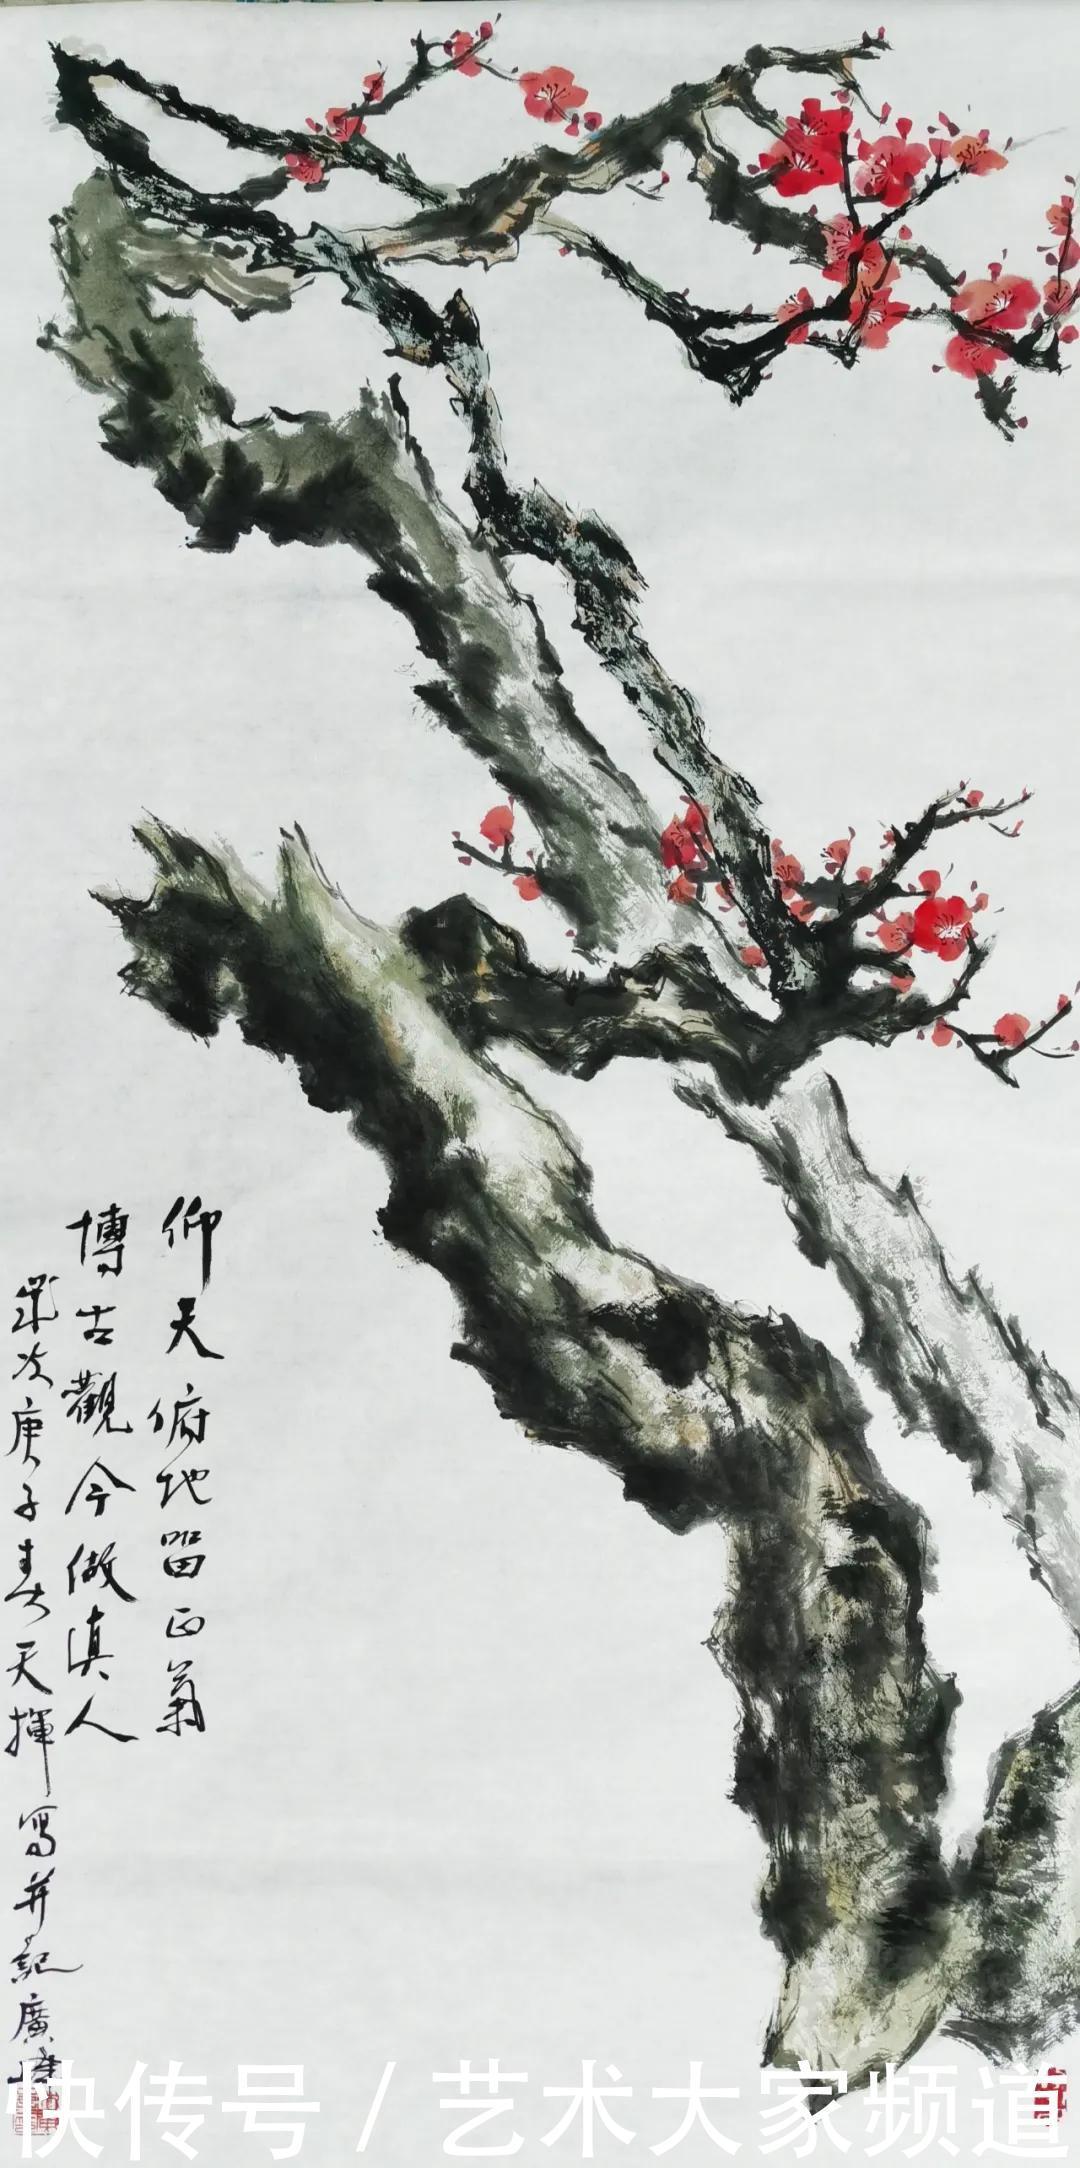 仰天俯地留正氣
博古觀今做真人
歲次庚子春天揮寫并記廣
快传号 / 艺术大家频道